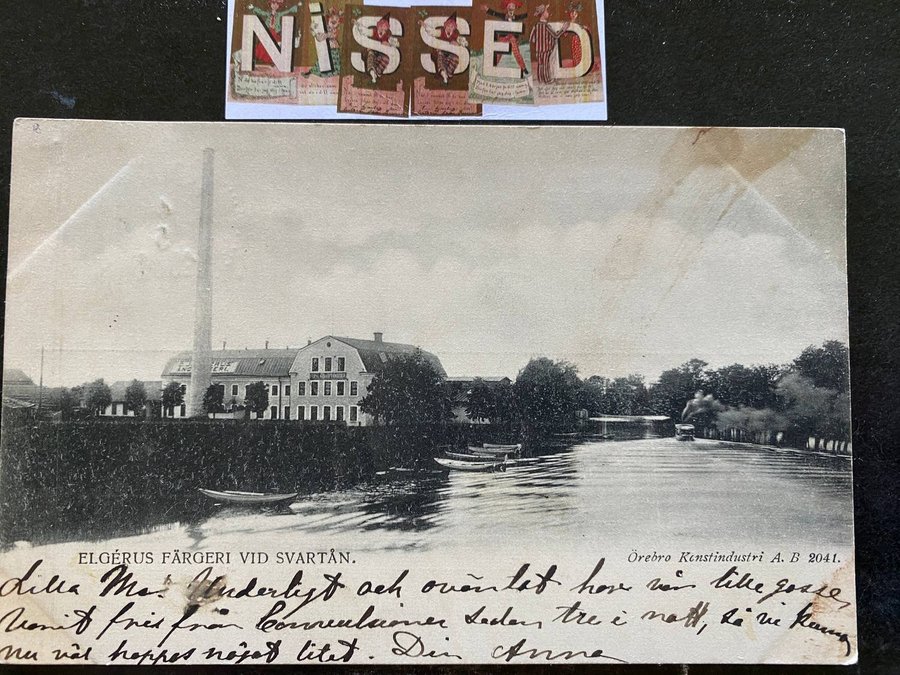 NISSED
ELGÉRUS FÄRGERI VID SVARTÅN.
Örebro Konstindustri A. B 2041.
Lilla Mor Underligt och oväntat har vår lille gosse
varit fri från Convulsioner sedan tre i natt, så vi kunna
nu väl hoppas något litet. Din Anna